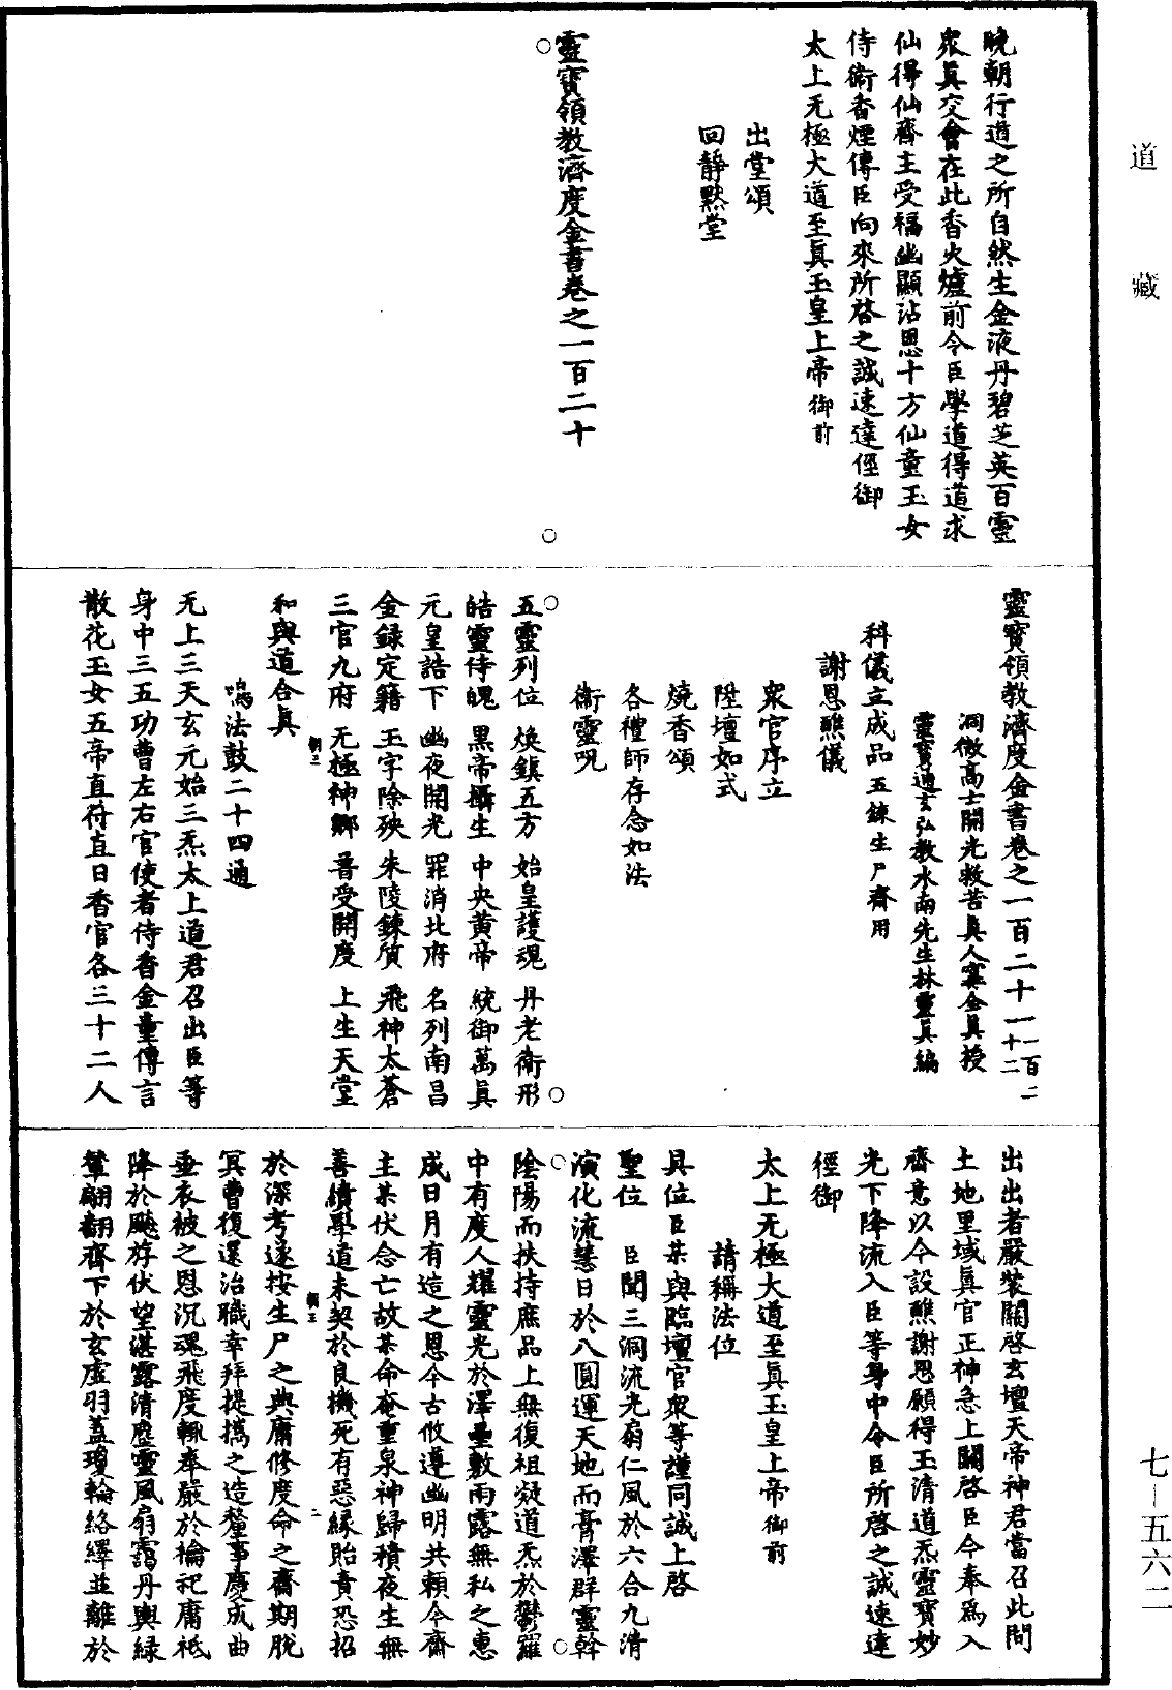 道藏
七-五六二
晚朝行道之所自然生金液丹碧芝英百靈
衆眞交會在此香火爐前令臣學道得道求
仙得仙齋主受福幽顯沾恩十方仙童玉女
侍衞香煙傳臣向來所啓之誠速達徑御
太上无極大道至眞玉皇上帝御前
出堂頌
回靜默堂
靈寶領教濟度金書卷之一百二十
靈寶領教濟度金書卷之一百二十一 一百二十二
洞微高士開光救苦眞人寗全眞授
靈寶通玄弘教水南先生林靈眞編
科儀立成品 五鍊生尸齋用
謝恩醮儀
衆官序立
陞壇如式
燒香頌
各禮師存念如法
衞靈呪
五靈列位 煥鎮五方 始皇護魂 丹老衞形
皓靈侍魄 黑帝攝生 中央黃帝 統御萬眞
元皇誥下 幽夜開光 罪消北府 名列南昌
金錄定籍 玉字除殃 朱陵鍊質 飛神太蒼
三官九府 无極神鄉 普受開度 上生天堂
和與道合眞
鳴法鼓二十四通
无上三天玄元始三炁太上道君召出臣等
身中三五功曹左右官使者侍香金童傳言
散花玉女五帝直符直日香官各三十二人
出出者嚴裝關啓玄壇天帝神君當召此間
土地里域眞官正神急上關啓臣今奉爲入
齋意以今設醮謝恩願得玉清道炁靈寶妙
光下降流入臣等身中令臣所啓之誠速達
徑御
太上无極大道至眞玉皇上帝御前
請稱法位
具位臣某與臨壇官衆等謹同誠上啓
聖位 臣聞三洞流光扇仁風於六合九清
演化流慧日於八圓運天地而膏澤群靈斡
陰陽而扶持庶品上無復祖凝道炁於鬱羅
中有度人耀靈光於澤壘敷雨露無私之惠
成日月有造之恩今古攸遵幽明共頼今齋
主某伏念亡故某命奄重泉神歸積夜生無
善績學道未契於良機死有惡縁貽責恐招
於深考遂按生尸之典庸修度命之齋期脫
冥曹復還治職幸拜提攜之造釐事慶成曲
垂衣被之恩沉魂飛度輒奉嚴於禴祀庸祗
降於飈斿伏望湛露清塵靈風扇靄丹輿緑
輦翩翻齊下於玄虛羽蓋瓊輪絡繹並離於